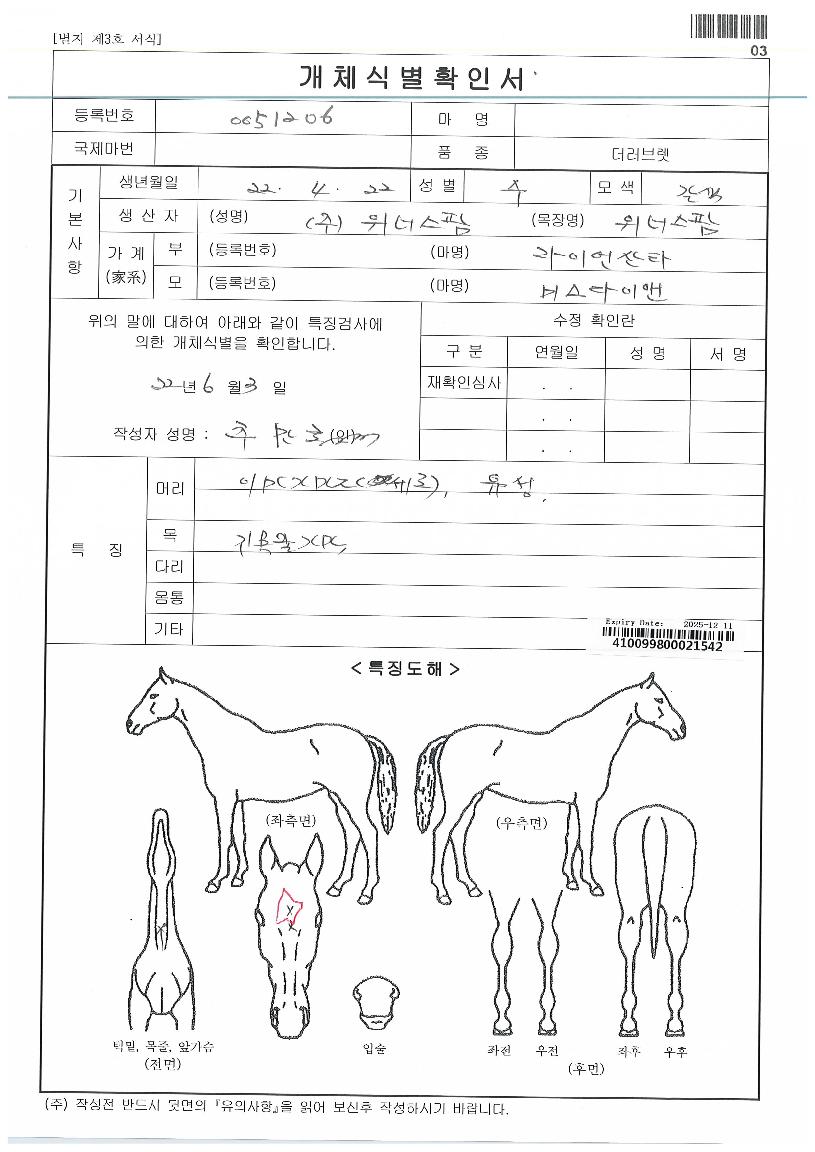 [별지 제3호 서식]
03
개체식별확인서
등록번호 0051206 마 명
국제마번 품 종 더러브렛
기본사항
생년월일 22. 4. 22 성별 수 모색 갈색
생산자 (성명) (주) 위너스팜 (목장명) 위너스팜
가계 (家系) 부 (등록번호) (마명) 라이언산타
모 (등록번호) (마명) 비스타이앤
위의 말에 대하여 아래와 같이 특징검사에
의한 개체식별을 확인합니다.
22년 6월 3일
작성자 성명 : (인)
수정 확인란
구분 연월일 성명 서명
재확인심사 . .
. .
. .
특 징
머리 유성.
목
다리
몸통
기타
Expiry Date: 2025-12-11
410099800021542
<특징도해>
(좌측면) (우측면)
턱밑, 목줄, 앞가슴
(전면)
입술
좌전 우전 좌후 우후
(후면)
(주) 작성전 반드시 뒷면의 『유의사항』을 읽어 보신후 작성하시기 바랍니다.